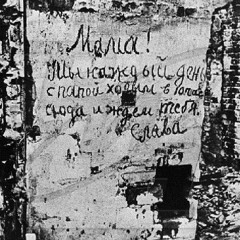 Мама!
Мы каждый день
с папой ходим в
сюда и ждем тебя.
Слава